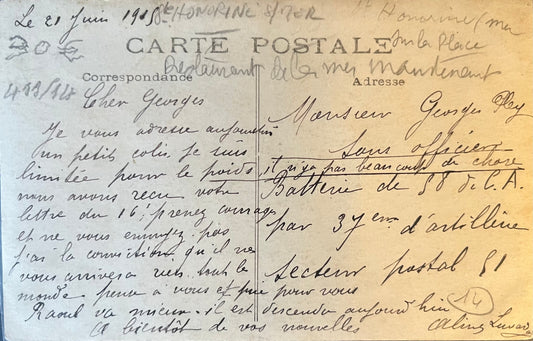 Le 21 Juin 1915
Ste HONORINE S/MER
Ste Honorine / mer
sur la Place
CARTE POSTALE
Restaurant de la mer maintenant
20€
499/14
Correspondance
Adresse
Cher Georges
Je vous adresse aujourd'hui
un petit colis je suis
limitée pour le poids
il n'y a pas beaucoup de chose
nous avons reçu votre
lettre du 16, prenez courage
et ne vous ennuyez pas
j'ai la conviction qu'il ne
vous arrivera rien tout le
monde pense à vous et prie pour vous
Raoul va mieux il est descendu aujourd'hui
A bientôt de vos nouvelles
Aline
Monsieur Georges
Sous officier
Batterie de 58 D.C.A.
par 37 eme d'artillerie
secteur postal 51
14